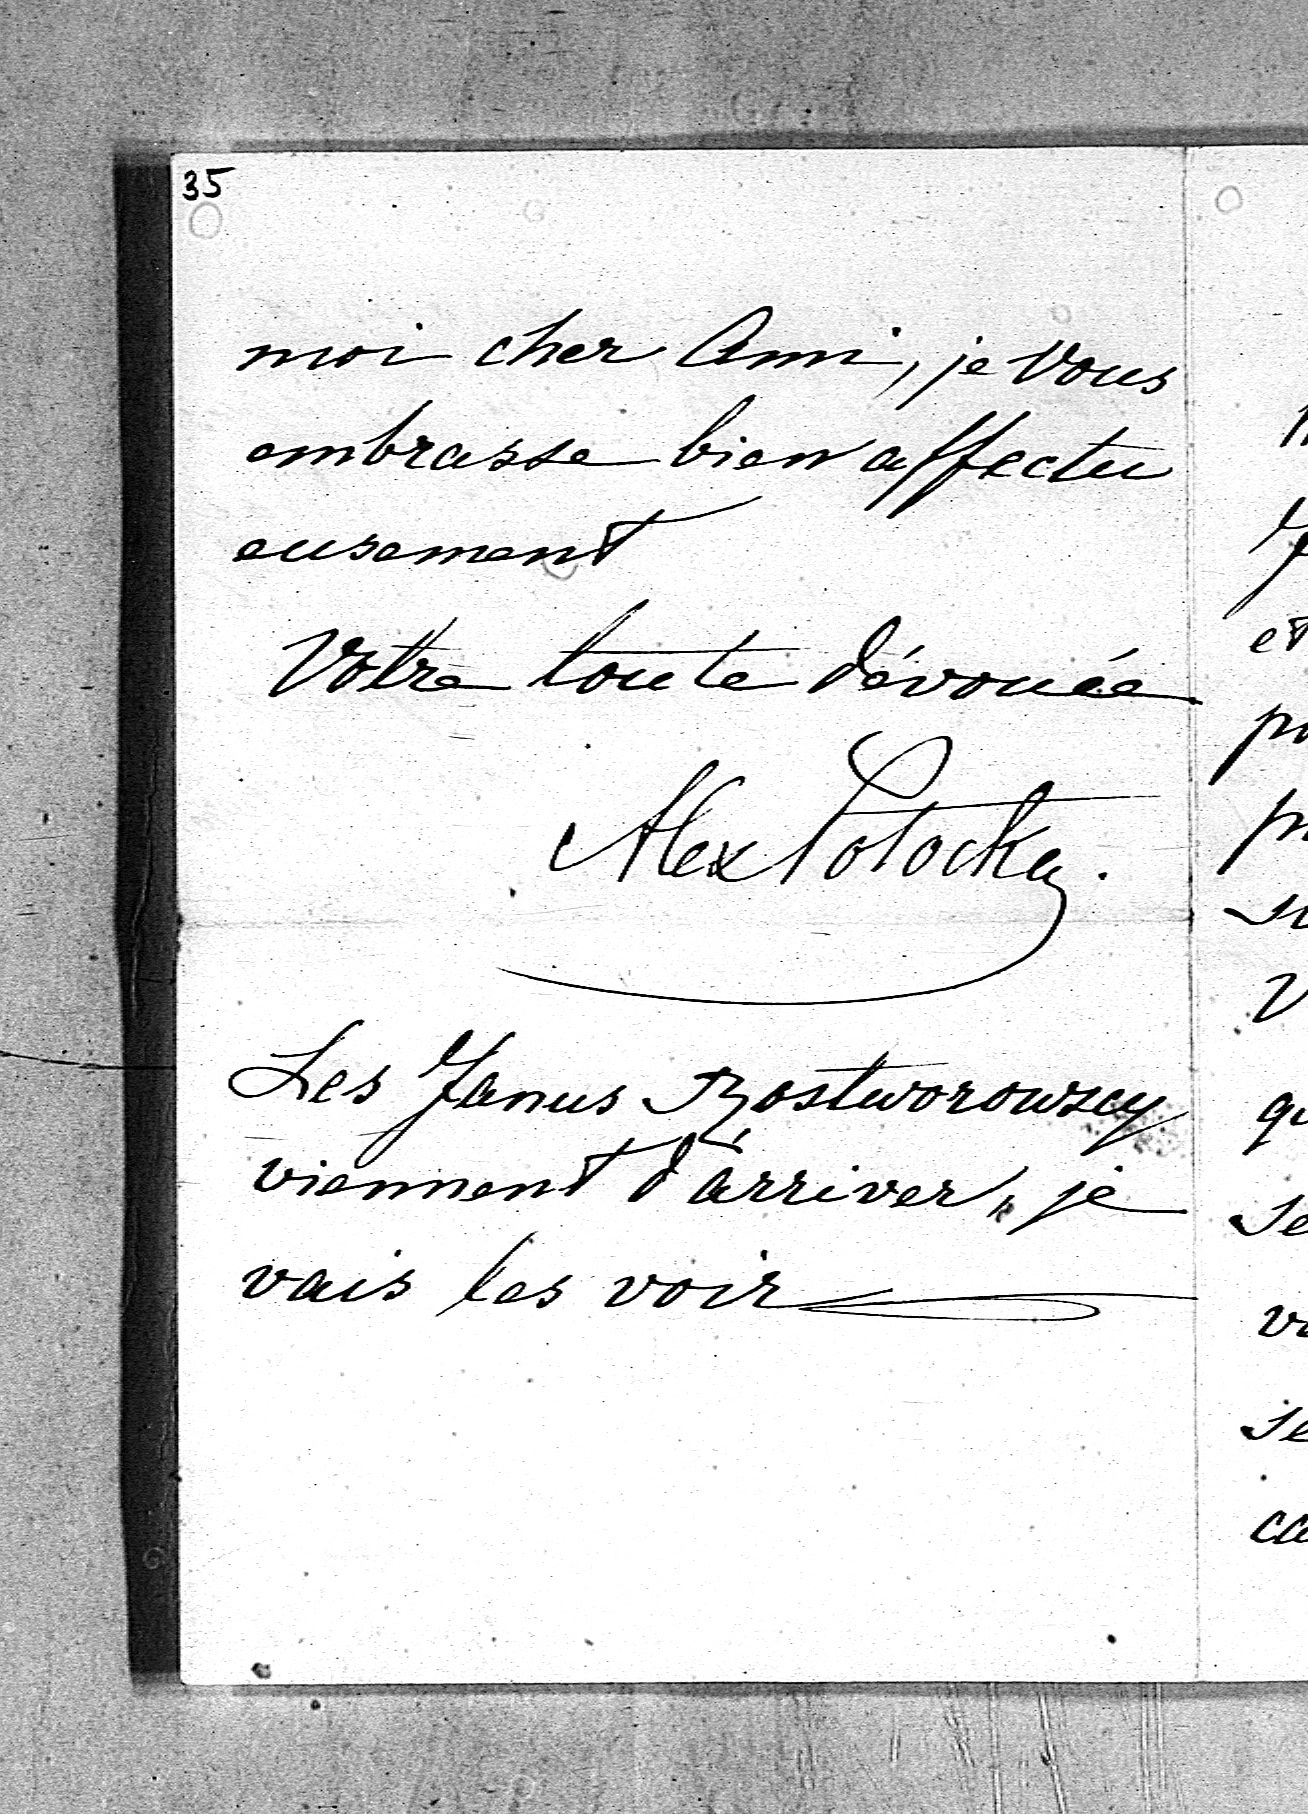 35
moi cher Ami, je Vous
embrasse bien affectu
eusement
Votre toute dévouée
Alex Potocka.
Les Janus Rostworowscy
viennent d'arriver, je
vais les voir